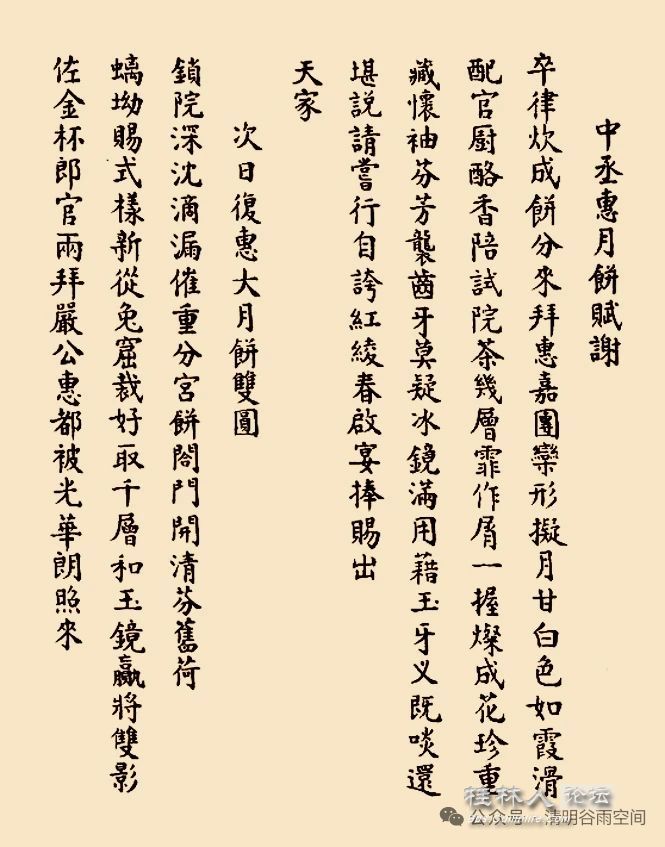 中丞惠月餅賦謝
卒律炊成餅分來拜惠嘉團欒形擬月甘白色如霞滑
配官厨酪香陪試院茶幾層霏作屑一握燦成花珍重
藏懷袖芬芳襲齒牙莫疑冰鏡滿用藉玉牙义既啖還
堪説請嘗行自誇紅綾春啟宴捧賜出
天家
次日復惠大月餅雙圓
鎖院深沈滴漏催重分宮餅閤門開清芬舊荷
螭坳賜式樣新從兔窟裁好取千層和玉鏡贏將雙影
佐金杯郎官兩拜嚴公惠都被光華朗照來
桂林人论坛
公众号 · 清明谷雨空间